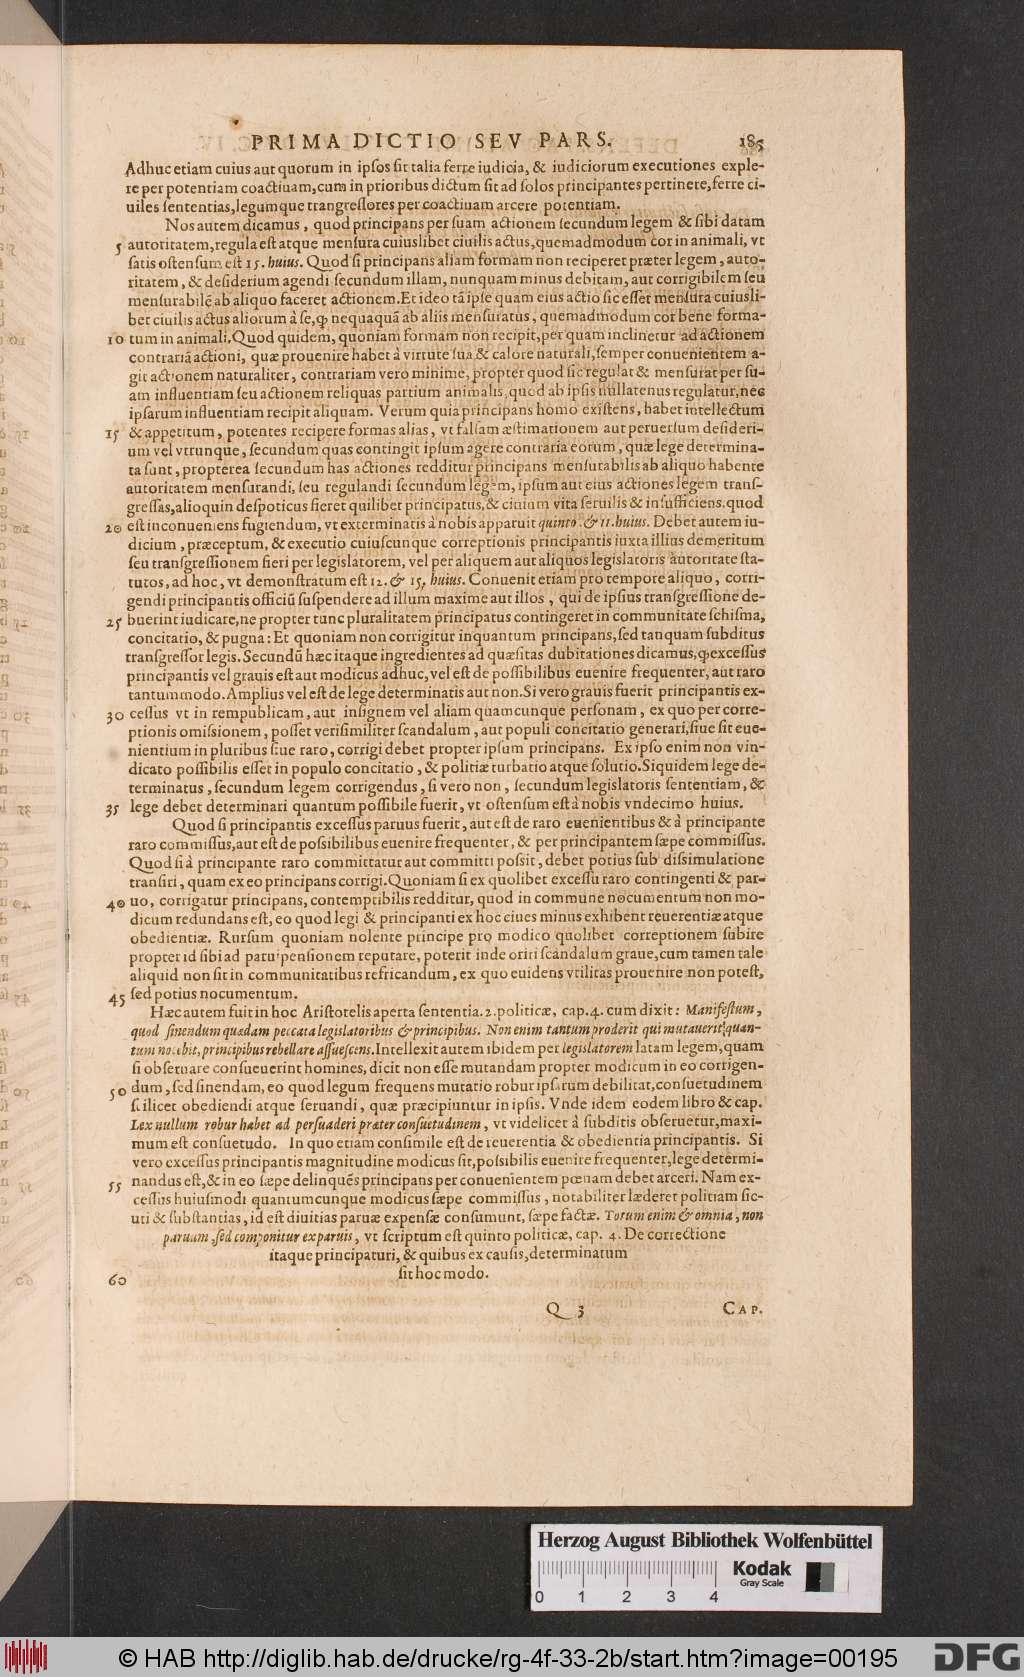 PRIMA DICTIO SEV PARS. 185
Adhuc etiam cuius aut quorum in ipsos sit talia ferre iudicia, & iudiciorum executiones exple-
re per potentiam coactiuam, cum in prioribus dictum sit ad solos principantes pertinere, ferre ci-
uiles sententias, legumque trangressores per coactiuam arcere potentiam.
Nos autem dicamus, quod principans per suam actionem secundum legem & sibi datam
5 autoritatem, regula est atque mensura cuiuslibet ciuilis actus, quemadmodum cor in animali, vt
satis ostensum est 15. huius. Quod si principans aliam formam non reciperet præter legem, auto-
ritatem, & desiderium agendi secundum illam, nunquam minus debitam, aut corrigibilem seu
mensurabilē ab aliquo faceret actionem. Et ideo tā ipse quam eius actio sic esset mensura cuiusli-
bet ciuilis actus aliorum à se, ꝙ nequaquā ab aliis mensuratus, quemadmodum cor bene forma-
10 tum in animali. Quod quidem, quoniam formam non recipit, per quam inclinetur ad actionem
contrariā actioni, quæ prouenire habet à virtute sua & calore naturali, semper conuenientem a-
git actionem naturaliter, contrariam vero minime, propter quod sic regulat & mensurat per su-
am influentiam seu actionem reliquas partium animalis, quod ab ipsis nullatenus regulatur, nec
ipsarum influentiam recipit aliquam. Verum quia principans homo existens, habet intellectum
15 & appetitum, potentes recipere formas alias, vt falsam æstimationem aut peruersum desideri-
um vel vtrunque, secundum quas contingit ipsum agere contraria eorum, quæ lege determina-
ta sunt, propterea secundum has actiones redditur principans mensurabilis ab aliquo habente
autoritatem mensurandi, seu regulandi secundum legem, ipsum aut eius actiones legem trans-
gressas, alioquin despoticus fieret quilibet principatus, & ciuium vita seruilis & insufficiens. quod
20 est inconueniens fugiendum, vt exterminatis à nobis apparuit quinto. & 11. huius. Debet autem iu-
dicium, præceptum, & executio cuiuscunque correptionis principantis iuxta illius demeritum
seu transgressionem fieri per legislatorem, vel per aliquem aut aliquos legislatoris autoritate sta-
tutos, ad hoc, vt demonstratum est 12. & 15. huius. Conuenit etiam pro tempore aliquo, corri-
gendi principantis officiū suspendere ad illum maxime aut illos, qui de ipsius transgressione de-
25 buerint iudicare, ne propter tunc pluralitatem principatus contingeret in communitate schisma,
concitatio, & pugna: Et quoniam non corrigitur inquantum principans, sed tanquam subditus
transgressor legis. Secundū hæc itaque ingredientes ad quæsitas dubitationes dicamus, ꝙ excessus
principantis vel grauis est aut modicus adhuc, vel est de possibilibus euenire frequenter, aut raro
tantummodo. Amplius vel est de lege determinatis aut non. Si vero grauis fuerit principantis ex-
30 cessus vt in rempublicam, aut insignem vel aliam quamcunque personam, ex quo per corre-
ptionis omissionem, posset verisimiliter scandalum, aut populi concitatio generari, siue sit eue-
nientium in pluribus siue raro, corrigi debet propter ipsum principans. Ex ipso enim non vin-
dicato possibilis esset in populo concitatio, & politiæ turbatio atque solutio. Siquidem lege de-
terminatus, secundum legem corrigendus, si vero non, secundum legislatoris sententiam, &
35 lege debet determinari quantum possibile fuerit, vt ostensum est à nobis vndecimo huius.
Quod si principantis excessus paruus fuerit, aut est de raro euenientibus & à principante
raro commissus, aut est de possibilibus euenire frequenter, & per principantem sæpe commissus.
Quod si à principante raro committatur aut committi possit, debet potius sub dissimulatione
transiri, quam ex eo principans corrigi. Quoniam si ex quolibet excessu raro contingenti & par-
40 uo, corrigatur principans, contemptibilis redditur, quod in commune nocumentum non mo-
dicum redundans est, eo quod legi & principanti ex hoc ciues minus exhibent reuerentiæ atque
obedientiæ. Rursum quoniam nolente principe pro modico quolibet correptionem subire
propter id sibi ad paruipensionem reputare, poterit inde oriri scandalum graue, cum tamen tale
aliquid non sit in communitatibus refricandum, ex quo euidens vtilitas prouenire non potest,
45 sed potius nocumentum.
Hæc autem fuit in hoc Aristotelis aperta sententia. 2. politicæ, cap. 4. cum dixit: Manifestum,
quod sinendum quædam peccata legislatoribus & principibus. Non enim tantum proderit qui mutauerit, quan-
tum nocebit, principibus rebellare assuescens. Intellexit autem ibidem per legislatorem latam legem, quam
si obseruare consueuerint homines, dicit non esse mutandam propter modicum in eo corrigen-
50 dum, sed sinendam, eo quod legum frequens mutatio robur ipsarum debilitat, consuetudinem
scilicet obediendi atque seruandi, quæ præcipiuntur in ipsis. Vnde idem eodem libro & cap.
Lex nullum robur habet ad persuaderi præter consuetudinem, vt videlicet à subditis obseruetur, maxi-
mum est consuetudo. In quo etiam consimile est de reuerentia & obedientia principantis. Si
vero excessus principantis magnitudine modicus sit, possibilis euenire frequenter, lege determi-
55 nandus est, & in eo sæpe delinquēs principans per conuenientem pœnam debet arceri. Nam ex-
cessus huiusmodi quantumcunque modicus sæpe commissus, notabiliter læderet politiam sic-
uti & substantias, id est diuitias paruæ expensæ consumunt, sæpe factæ. Totum enim & omnia, non
paruum, sed componitur ex paruis, vt scriptum est quinto politicæ, cap. 4. De correctione
itaque principaturi, & quibus ex causis, determinatum
60 sit hoc modo.
Q 3 CAP.
Herzog August Bibliothek Wolfenbüttel
Kodak
Gray Scale
0 1 2 3 4
© HAB http://diglib.hab.de/drucke/rg-4f-33-2b/start.htm?image=00195
DFG